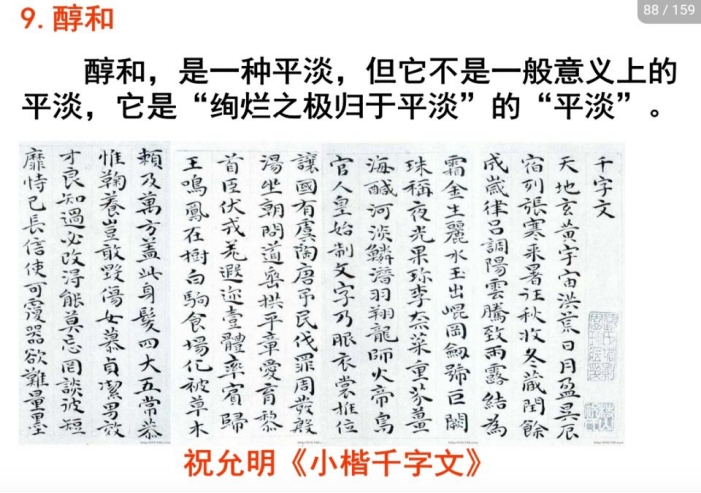 88 / 159
9. 醇和
醇和，是一种平淡，但它不是一般意义上的
平淡，它是“绚烂之极归于平淡”的“平淡”。
千字文
天地玄黄宇宙洪荒日月盈昃辰
宿列張寒来暑往秋收冬藏閏餘
成歲律吕調陽雲騰致雨露結為
霜金生麗水玉出崐岡劒號巨闕
珠稱夜光果珍李柰菜重芥薑
海醎河淡鱗潛羽翔龍師火帝鳥
官人皇始制文字乃服衣裳推位
讓國有虞陶唐弔民伐罪周發殷
湯坐朝問道垂拱平章愛育黎
首臣伏戎羌遐迩壹體率賓歸
王鳴鳳在樹白駒食場化被草木
賴及萬方盖此身髮四大五常恭
惟鞠養豈敢毀傷女慕貞潔男效
才良知過必改得能莫忘罔談彼短
靡恃己長信使可覆器欲難量墨
祝允明《小楷千字文》